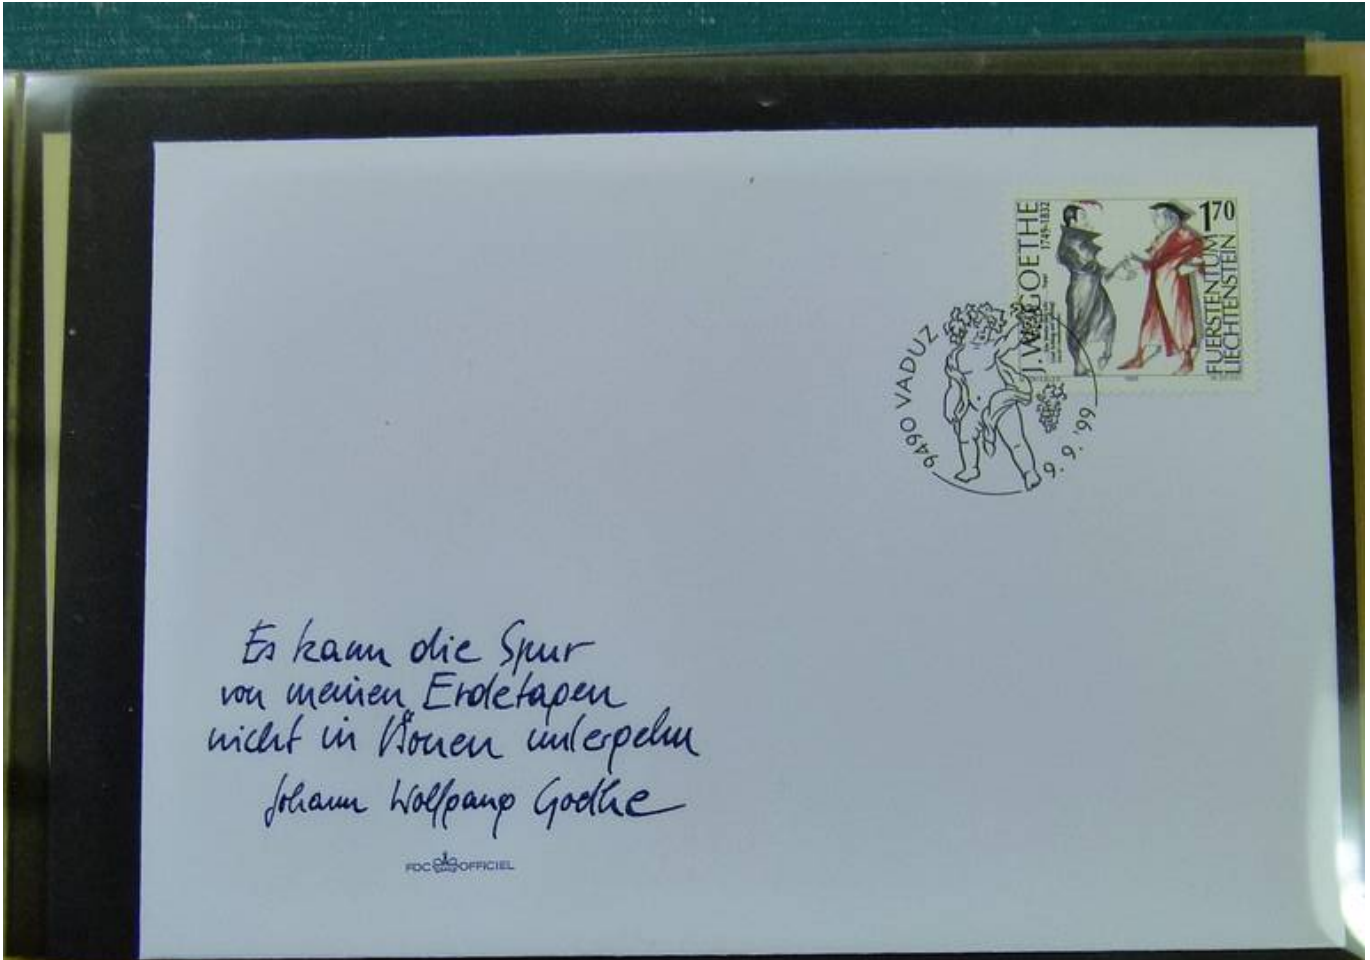 J.W. GOETHE
1749-1832
1⁷⁰
FUERSTENTUM
LIECHTENSTEIN
9490 VADUZ
9.9.'99
Es kann die Spur
von meinen Erdetagen
nicht in Äonen untergehn
Johann Wolfgang Goethe
FDC OFFICIEL